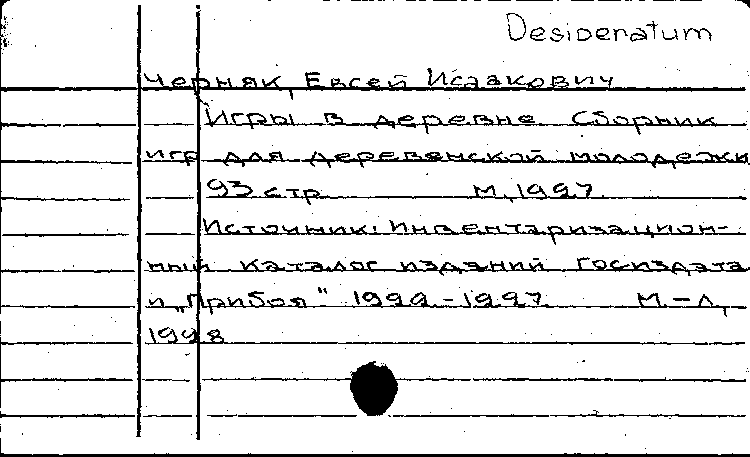 Desideratum
Черняк, Евсей Исаакович
Игры в деревне Сборник
игр для деревенской молодежи
93 стр М, 1927.
Источник: Инвентаризацион-
ный каталог изданий Госиздата
и „Прибоя" 1922.-1927. М.-Л,
1928